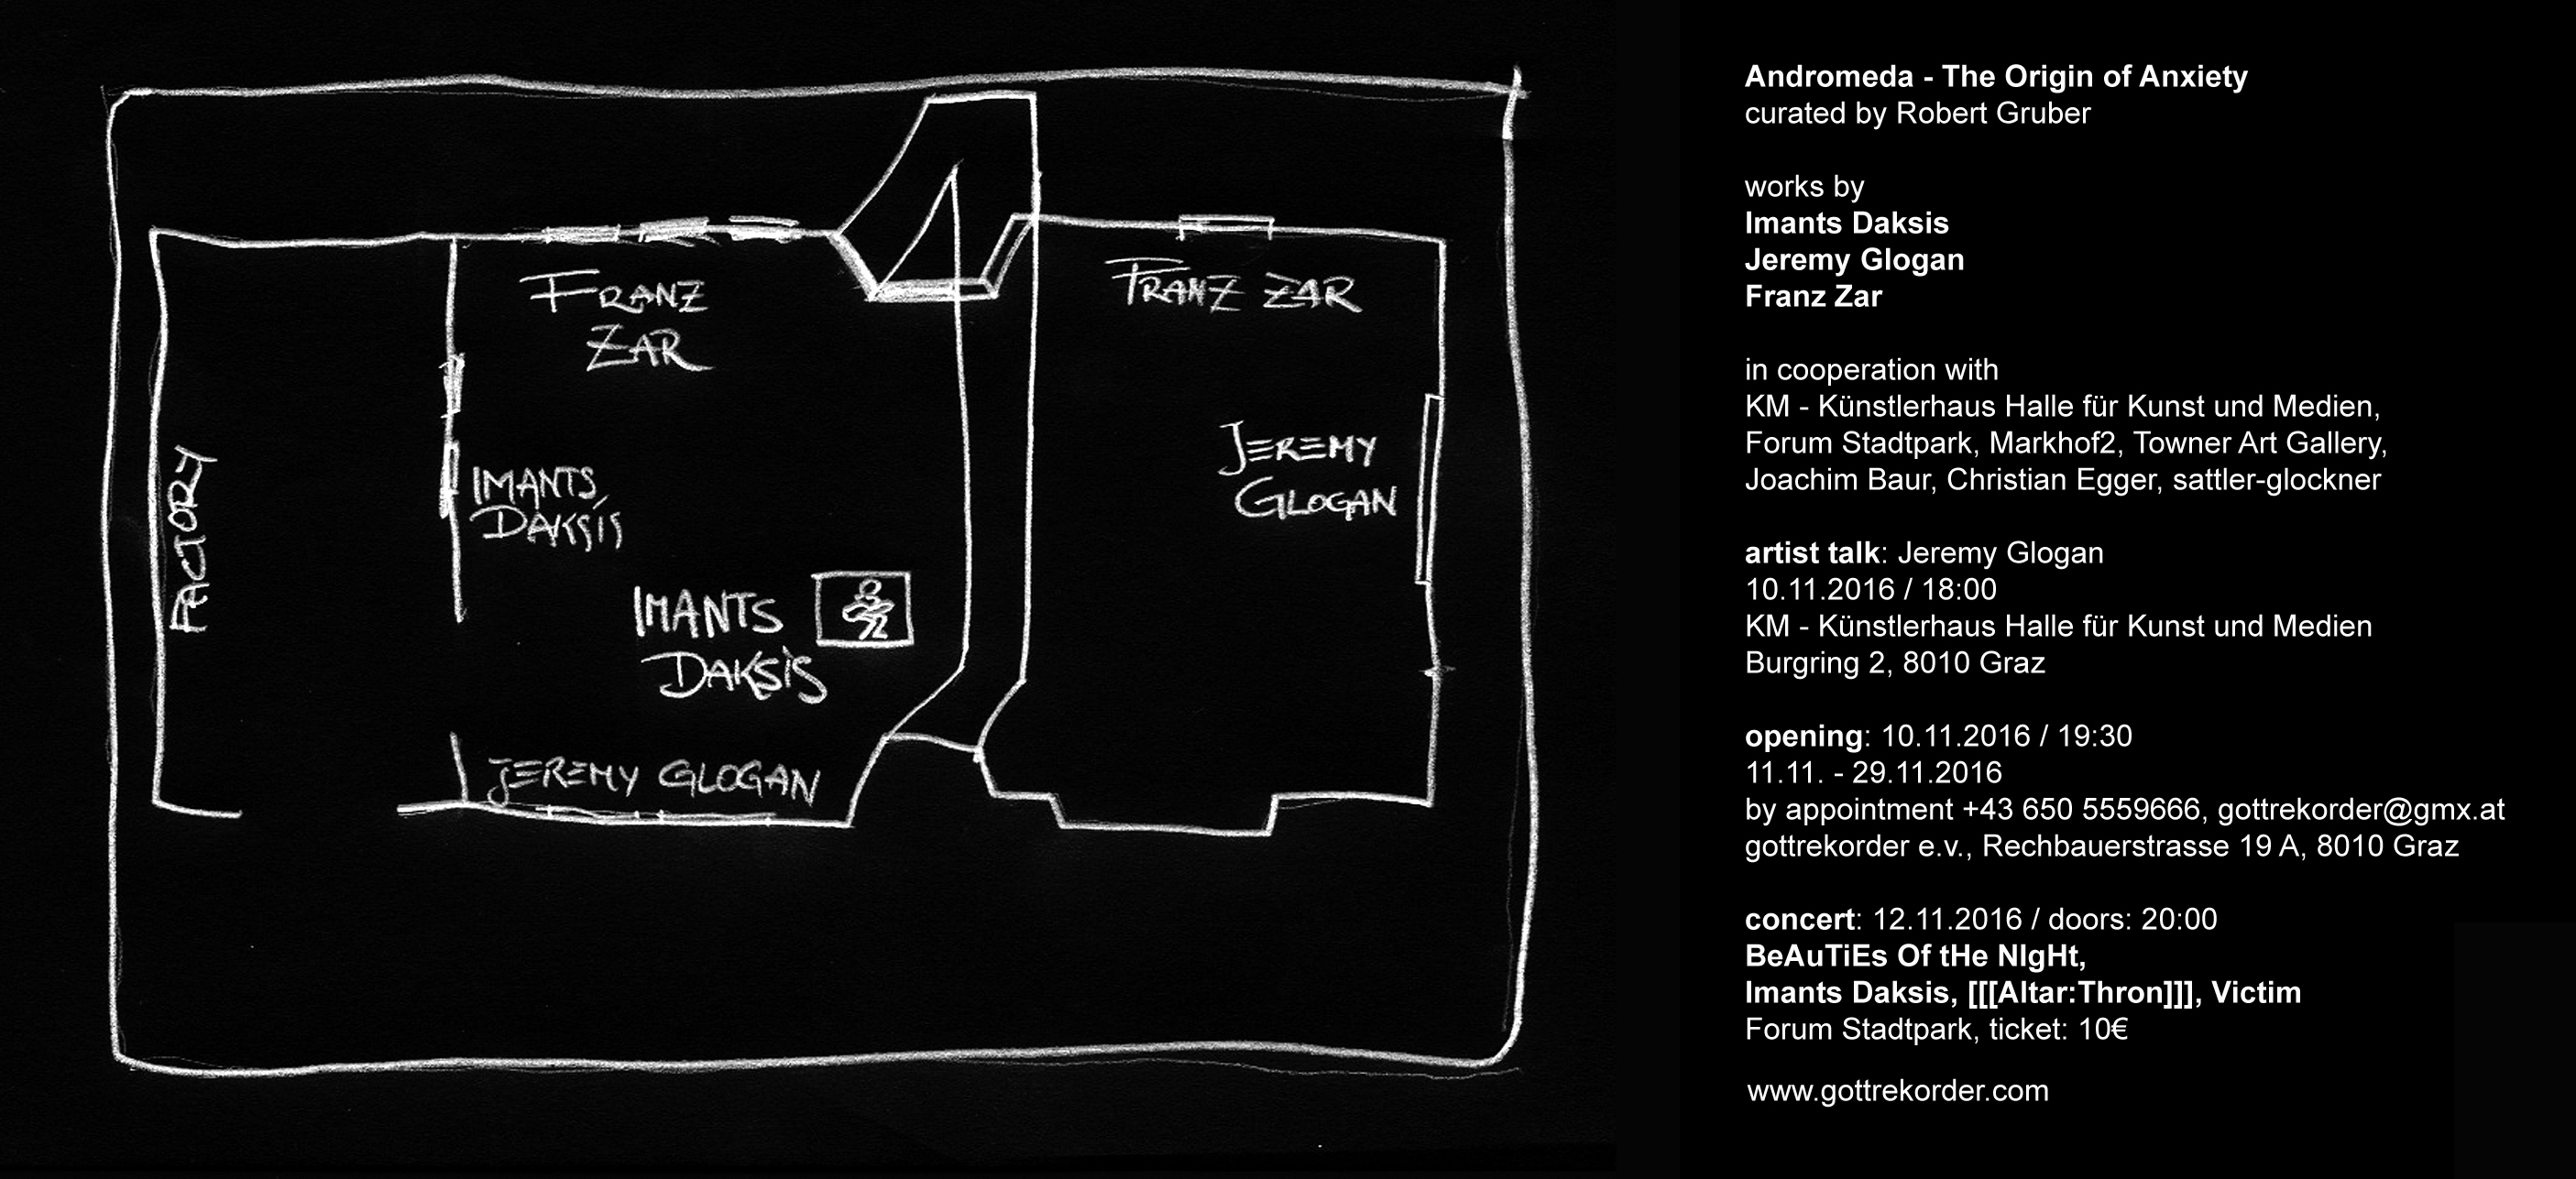 FRANZ
ZAR
FRANZ ZAR
FACTORY
IMANTS
DAKSIS
JEREMY
GLOGAN
IMANTS
DAKSIS
JEREMY GLOGAN
Andromeda - The Origin of Anxiety
curated by Robert Gruber
works by
Imants Daksis
Jeremy Glogan
Franz Zar
in cooperation with
KM - Künstlerhaus Halle für Kunst und Medien,
Forum Stadtpark, Markhof2, Towner Art Gallery,
Joachim Baur, Christian Egger, sattler-glockner
artist talk: Jeremy Glogan
10.11.2016 / 18:00
KM - Künstlerhaus Halle für Kunst und Medien
Burgring 2, 8010 Graz
opening: 10.11.2016 / 19:30
11.11. - 29.11.2016
by appointment +43 650 5559666, gottrekorder@gmx.at
gottrekorder e.v., Rechbauerstrasse 19 A, 8010 Graz
concert: 12.11.2016 / doors: 20:00
BeAuTiEs Of tHe NIgHt,
Imants Daksis, [[[Altar:Thron]]], Victim
Forum Stadtpark, ticket: 10€
www.gottrekorder.com